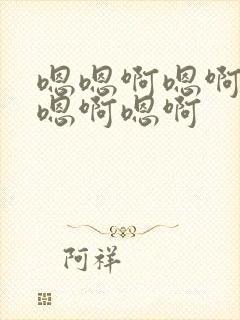 嗯嗯啊嗯啊
嗯啊嗯啊
阿祥